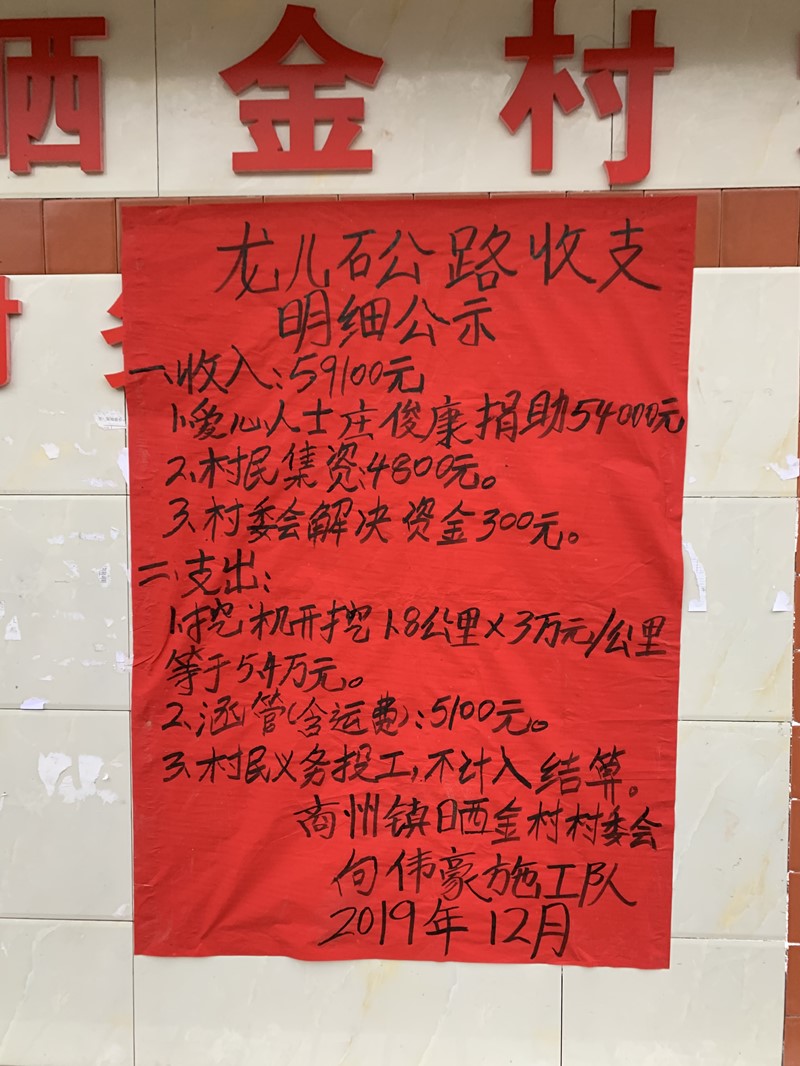 晒金村
龙儿石公路收支
明细公示
一、收入:59100元
1.爱心人士庄俊康捐助54000元
2.村民集资4800元。
3.村委会解决资金300元。
二、支出:
1.挖机开挖1.8公里×3万元/公里
等于5.4万元。
2.涵管(含运费):5100元。
3.村民义务投工,不计入结算。
商州镇晒金村村委会
向伟豪施工队
2019年12月